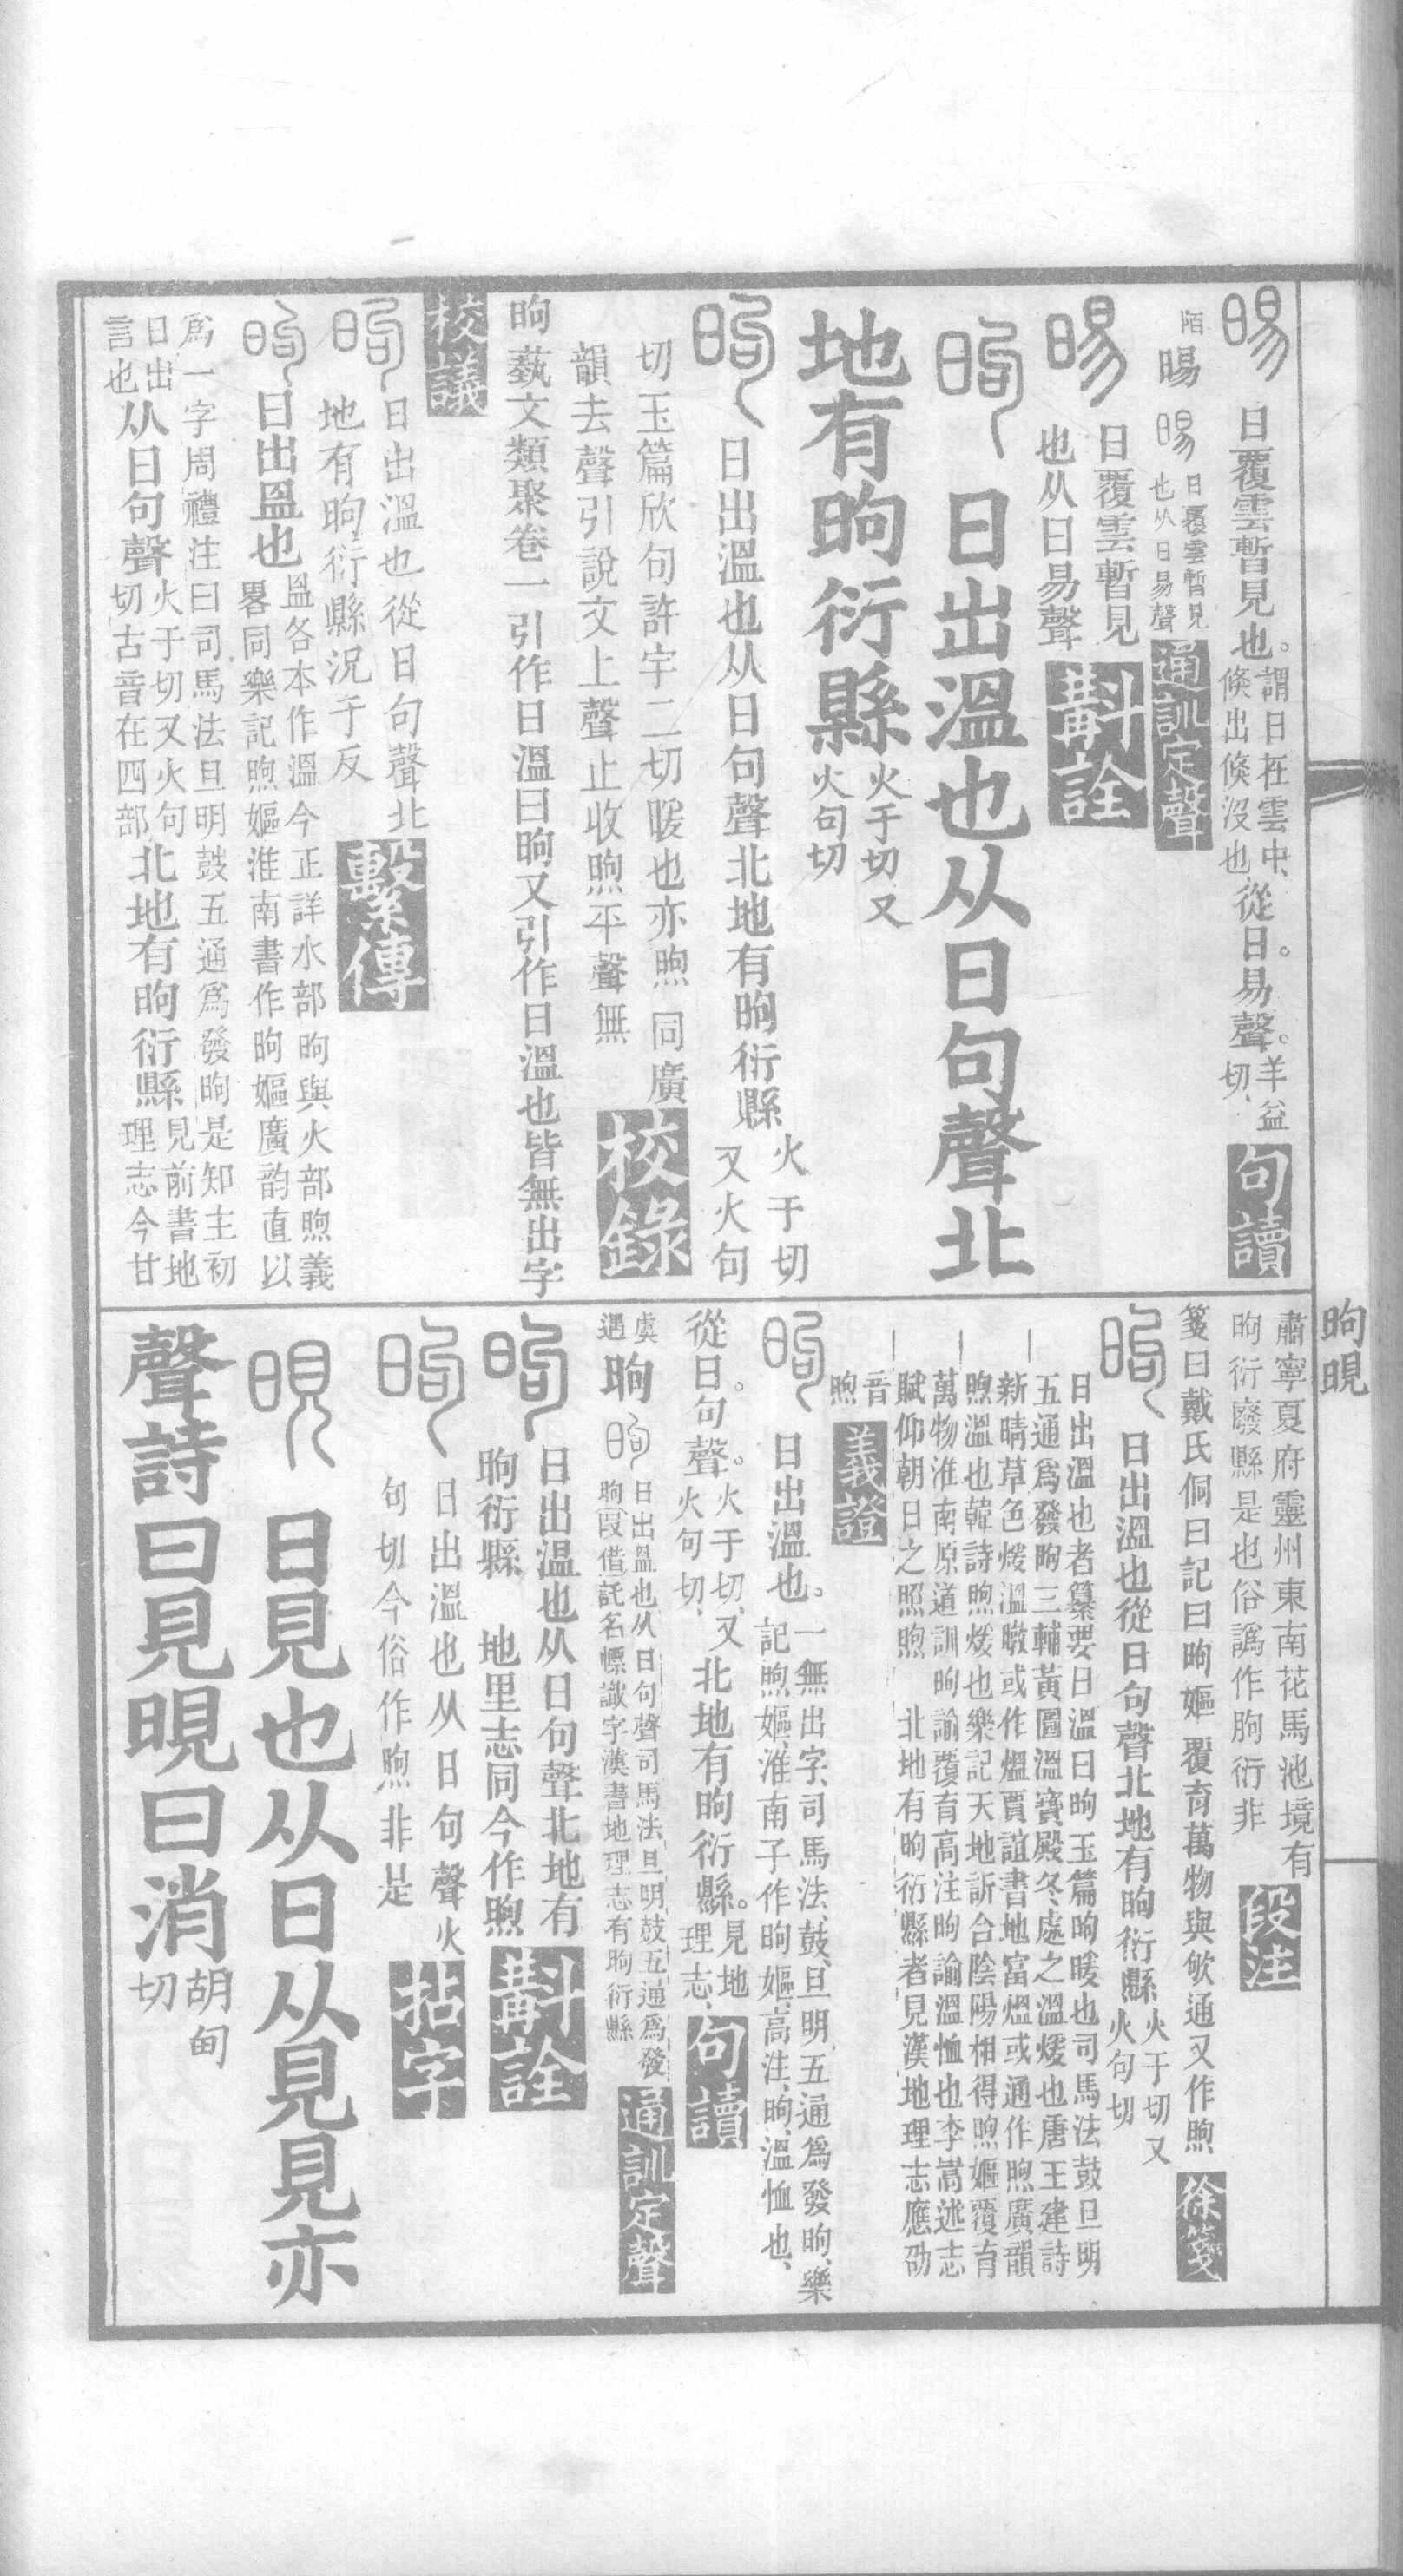 昫晛
暘 日覆雲暫見也。謂日在雲中、
倏出倏沒也、從日。易聲。羊益
切、句讀
陌 暘 暘 日覆雲暫見
也从日易聲 通訓定聲
暘 日覆雲暫見
也从日易聲 斠詮
昫 日出溫也从日句聲北
地有昫衍縣 火于切又
火句切
昫 日出溫也从日句聲北地有昫衍縣 火于切
又火句
切玉篇欣句許宇二切暖也亦煦同廣
韻去聲引說文上聲止收煦平聲無 校錄
昫 藝文類聚卷一引作日溫曰昫又引作日溫也皆無出字
校議
昫 日出溫也從日句聲北
地有昫衍縣況于反 繫傳
昫 日出𥁕也 𥁕各本作溫今正詳水部昫與火部煦義
畧同樂記煦嫗淮南書作昫嫗廣韵直以
爲一字周禮注曰司馬法旦明鼓五通爲發昫是知主初
日出
言也 从日句聲 火于切又火句
切古音在四部 北地有昫衍縣 見前書地
理志今甘
肅寧夏府靈州東南花馬池境有
昫衍廢縣是也俗譌作朐衍非 段注
箋曰戴氏侗曰記曰昫嫗覆育萬物與欨通又作煦 徐箋
昫 日出溫也從日句聲北地有昫衍縣 火于切又
火句切
日出溫也者纂要日溫曰昫玉篇昫暖也司馬法鼓旦明
五通爲發昫三輔黃圖溫室殿冬處之溫煖也唐王建詩
新晴草色煖溫暾或作熅賈誼書地富熅或通作煦廣韻
煦溫也韓詩煦煖也樂記天地訢合陰陽相得煦嫗覆育
萬物淮南原道訓昫諭覆育高注昫諭溫恤也李嵩述志
賦仰朝日之照煦 北地有昫衍縣者見漢地理志應劭
音
煦 義證
昫 日出溫也。一無出字、司馬法、鼓、旦明、五通爲發昫、樂
記煦嫗、淮南子作昫嫗、高注、昫、溫恤也、
從日。句聲。火于切、又
火句切、北地有昫衍縣。見地
理志、句讀
虞
遇 昫 昫 日出溫也从日句聲司馬法旦明鼓五通爲發
昫叚借託名幖識字漢書地理志有昫衍縣 通訓定聲
昫 日出溫也从日句聲北地有
昫衍縣 地里志同今作煦 斠詮
昫 日出溫也从日句聲火
句切今俗作煦非是 拈字
晛 日見也从日从見見亦
聲詩曰見晛曰消 胡甸
切